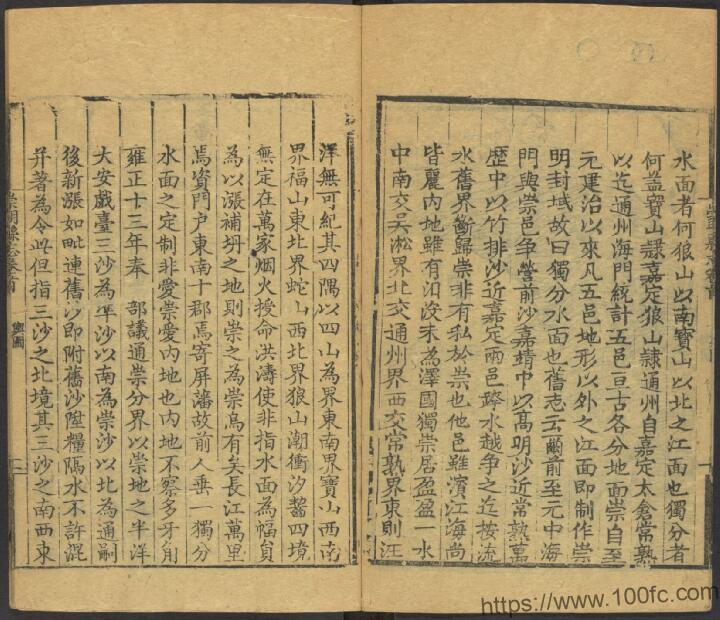 水面者何狼山以南寶山以北之江面也獨分者
何蓋寶山隸嘉定狼山隸通州自嘉定太倉常熟
以迄通州海門統計五邑亘古各分地面崇自至
元建治以來凡五邑地形以外之江面即制作崇
明封域故曰獨分水面也舊志云爾前至元中海
門與崇邑爭營前沙嘉靖中以高明沙近常熟萬
歷中以竹排沙近嘉定兩邑跨水越爭之迄按流
水舊界斷歸崇非有私於崇也他邑雖濱江海尚
皆麗內地雖有汨沒末為澤國獨崇居盈盈一水
中南交吳淞界北交通州界西交常熟界東則汪
洋無可紀其四隅以四山為界東南界寶山西南
界福山東北界蛇山西北界狼山潮衝汐齧四境
無定在萬家烟火授命洪濤使非指水面為幅員
為以漲補坍之地則崇之為崇烏有矣長江萬里
焉資門户東南十郡焉寄屏藩故前人垂一獨分
水面之定制非愛崇愛內地也內地不察多牙角
雍正十三年奉 部議通崇分界以崇地之半洋
大安戲臺三沙為準沙以南為崇沙以北為通嗣
後新漲如毗連舊沙即附舊沙陞糧隔水不許混
并著為令此但指三沙之北境其三沙之南西東
輿圖
https://www.100fc.com